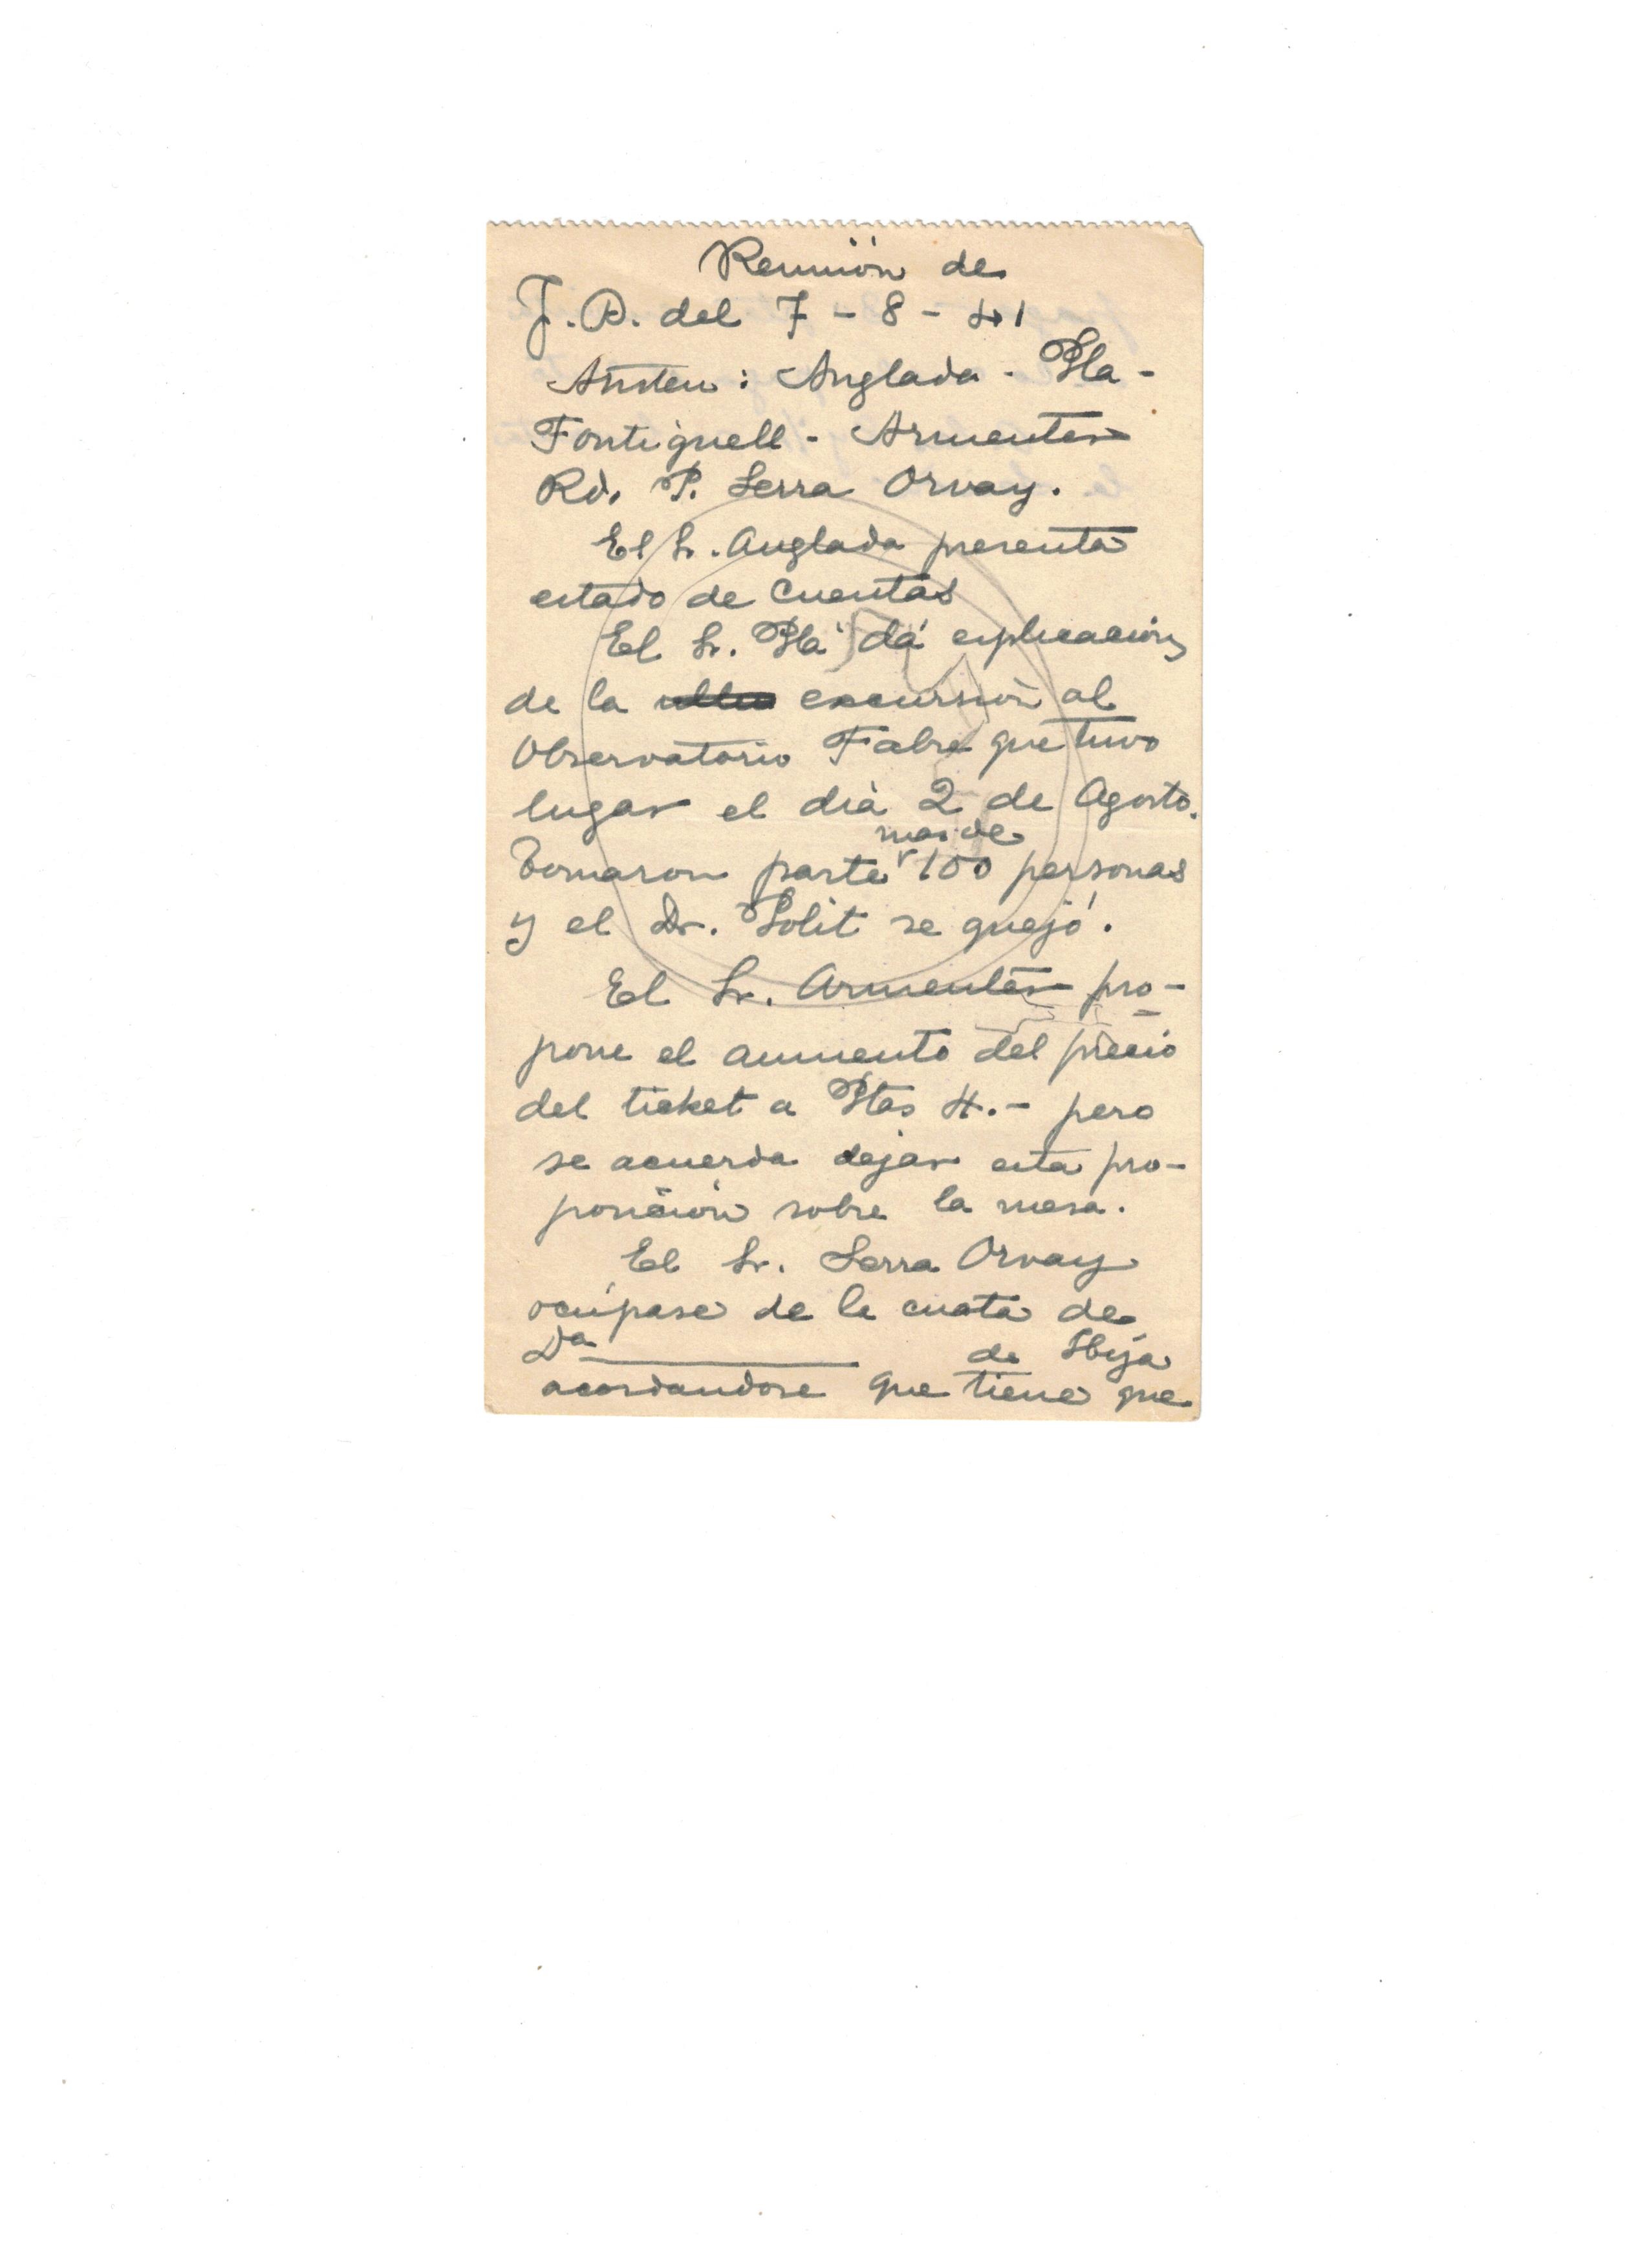 Reunión de
J.D. del 7 - 8 - 41
Asisten: Anglada - Pla -
Fontignell - Armenter
Rd. P. Serra Orvay.
El Sr. Anglada presenta
estado de cuentas
El Sr. Pla dá explicación
de la excursión al
Observatorio Fabra que tuvo
lugar el día 2 de Agosto.
Tomaron parte mas de 100 personas
y el Dr. Polit se quejó.
El Sr. Armenter pro-
pone el aumento del precio
del ticket a Ptas 4.- pero
se acuerda dejar esta pro-
posición sobre la mesa.
El Sr. Serra Orvay
ocúpase de la cuota de
Da ________ de Ibiza
acordandose que tiene que